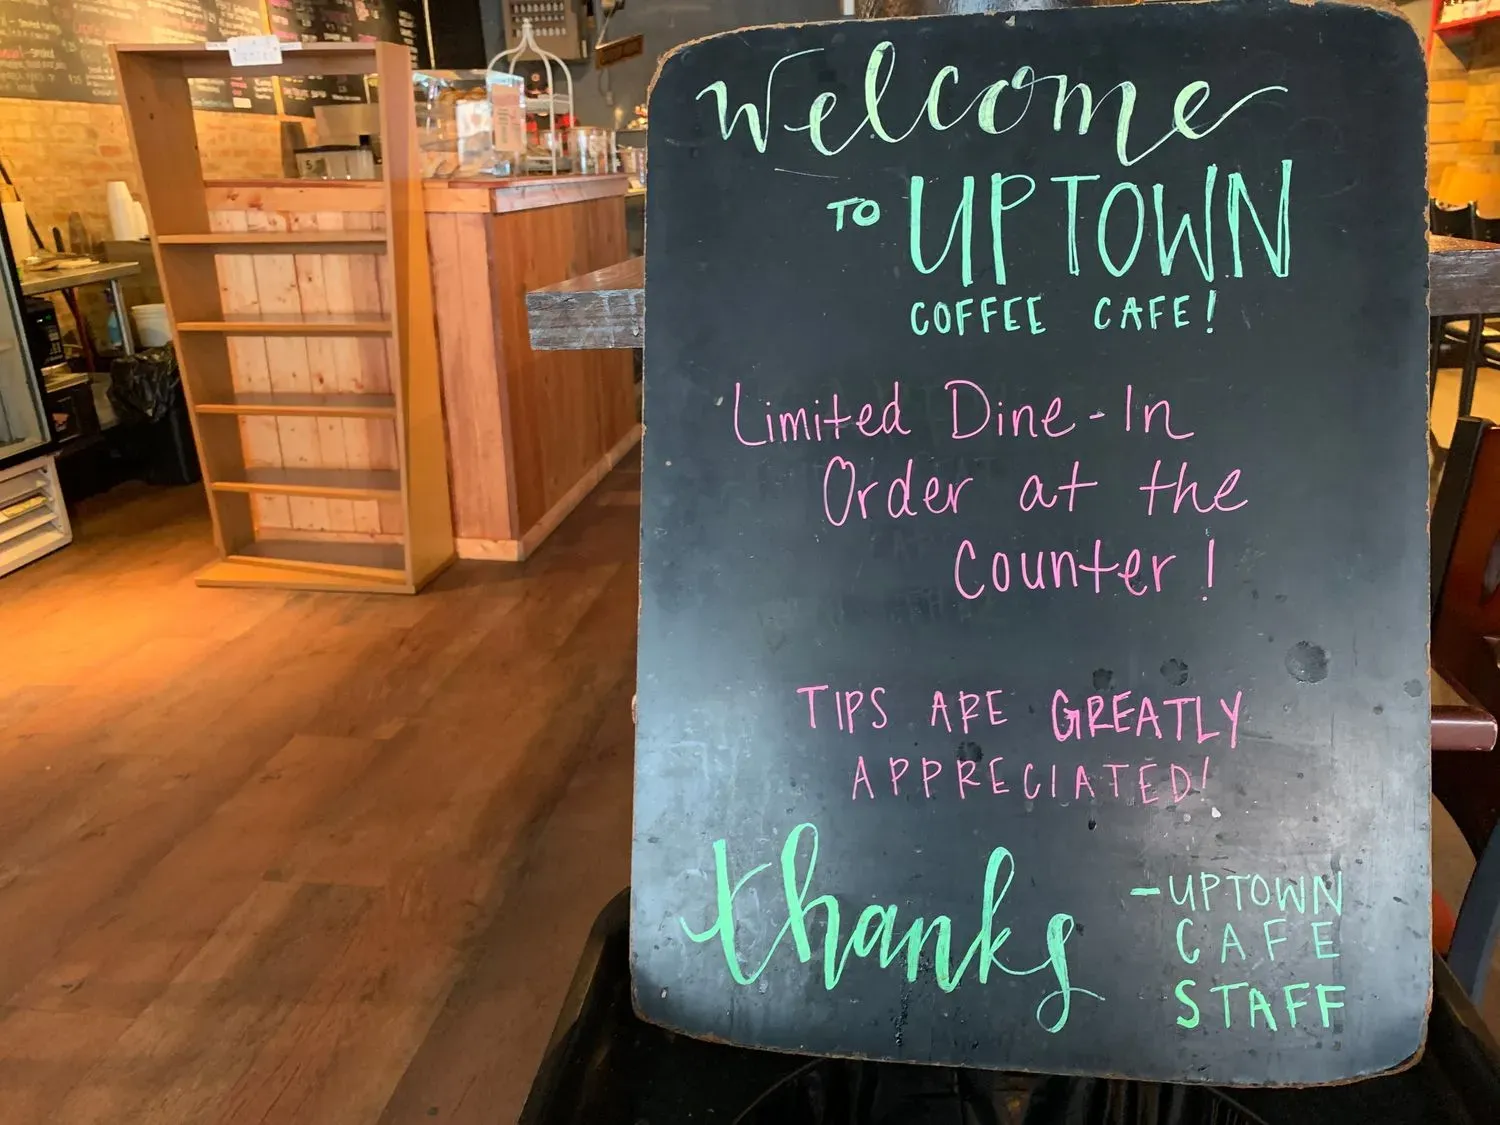 Welcome
TO UPTOWN
COFFEE CAFE!
Limited Dine-In
Order at the
Counter!
TIPS ARE GREATLY
APPRECIATED!
thanks
-UPTOWN
CAFE
STAFF